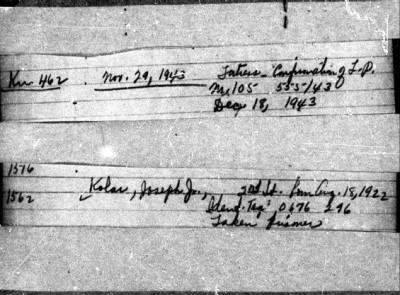 Ku 462 Nov. 29, 1943 Confirmation of L.P.
M.105 555/43
Dec. 18, 1943
1576
1562 Kolar, Joseph Jr., 2nd Lt. born Aug. 18, 1922
Ident. Tag: 0676 296
Taken Prisoner